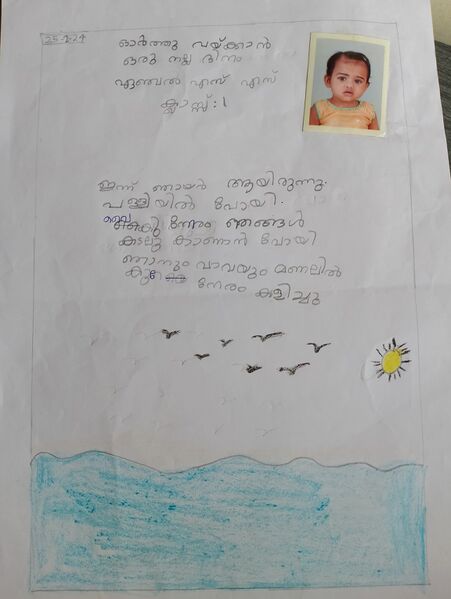 25-2-24
ഓർത്തു വയ്ക്കാൻ
ഒരു നല്ല ദിനം
ഏഞ്ചൽ എസ് എസ്
ക്ലാസ്സ്:1
ഇന്ന് ഞായർ ആയിരുന്നു.
പള്ളിയിൽ പോയി.
വൈകി നേരം ഞങ്ങൾ
കടലു കാണാൻ പോയി
ഞാനും വാവയും മണലിൽ
നേരം കളിച്ചു